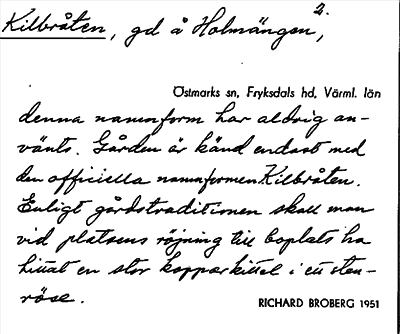 Kilbråten, gd å Holmängen 2.,
Östmarks sn, Fryksdals hd, Värml. län
denna namnform har aldrig an-
vänts. Gården är känd endast med
den officiella namnformen Kilbråten.
Enligt gårdstraditionen skall man
vid platsens röjning till boplats ha
hittat en stor kopparkittel i ett sten-
röse.
RICHARD BROBERG 1951